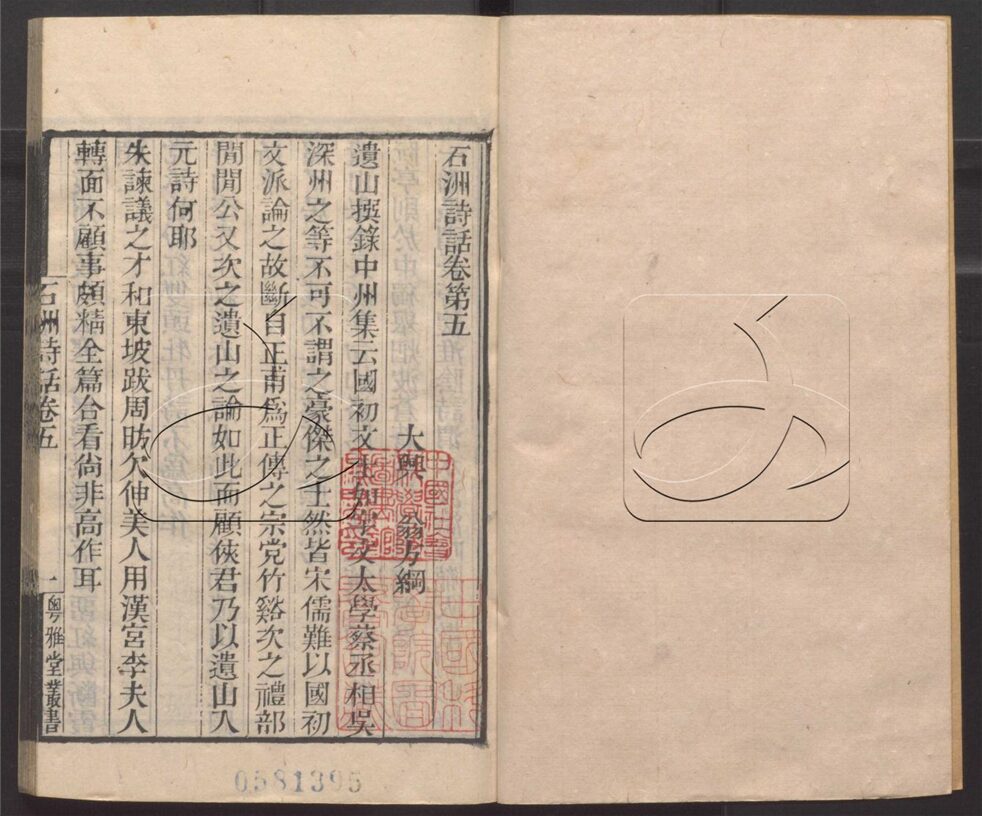 石洲詩話卷第五
大興 翁方綱
遺山撰錄中州集云國初文士如宇文太學蔡丞相吳
深州之等不可不謂之豪傑之士然皆宋儒難以國初
文派論之故斷自正甫爲正傳之宗党竹谿次之禮部
閒閒公又次之遺山之論如此而顧俠君乃以遺山入
元詩何耶
朱諫議之才和東坡跋周昉欠伸美人用漢宮李夫人
轉面不顧事頗精全篇合看尙非高作耳
石州詩話卷五
一
粵雅堂叢書
0581395